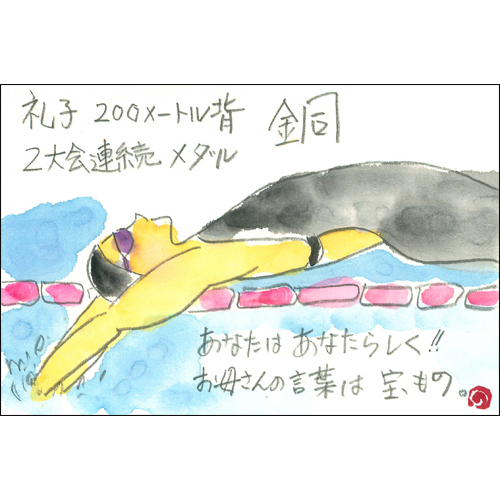 礼子 200メートル背 銅
2大会連続 メダル
あなたは あなたらしく!!
お母さんの言葉は 宝もの。